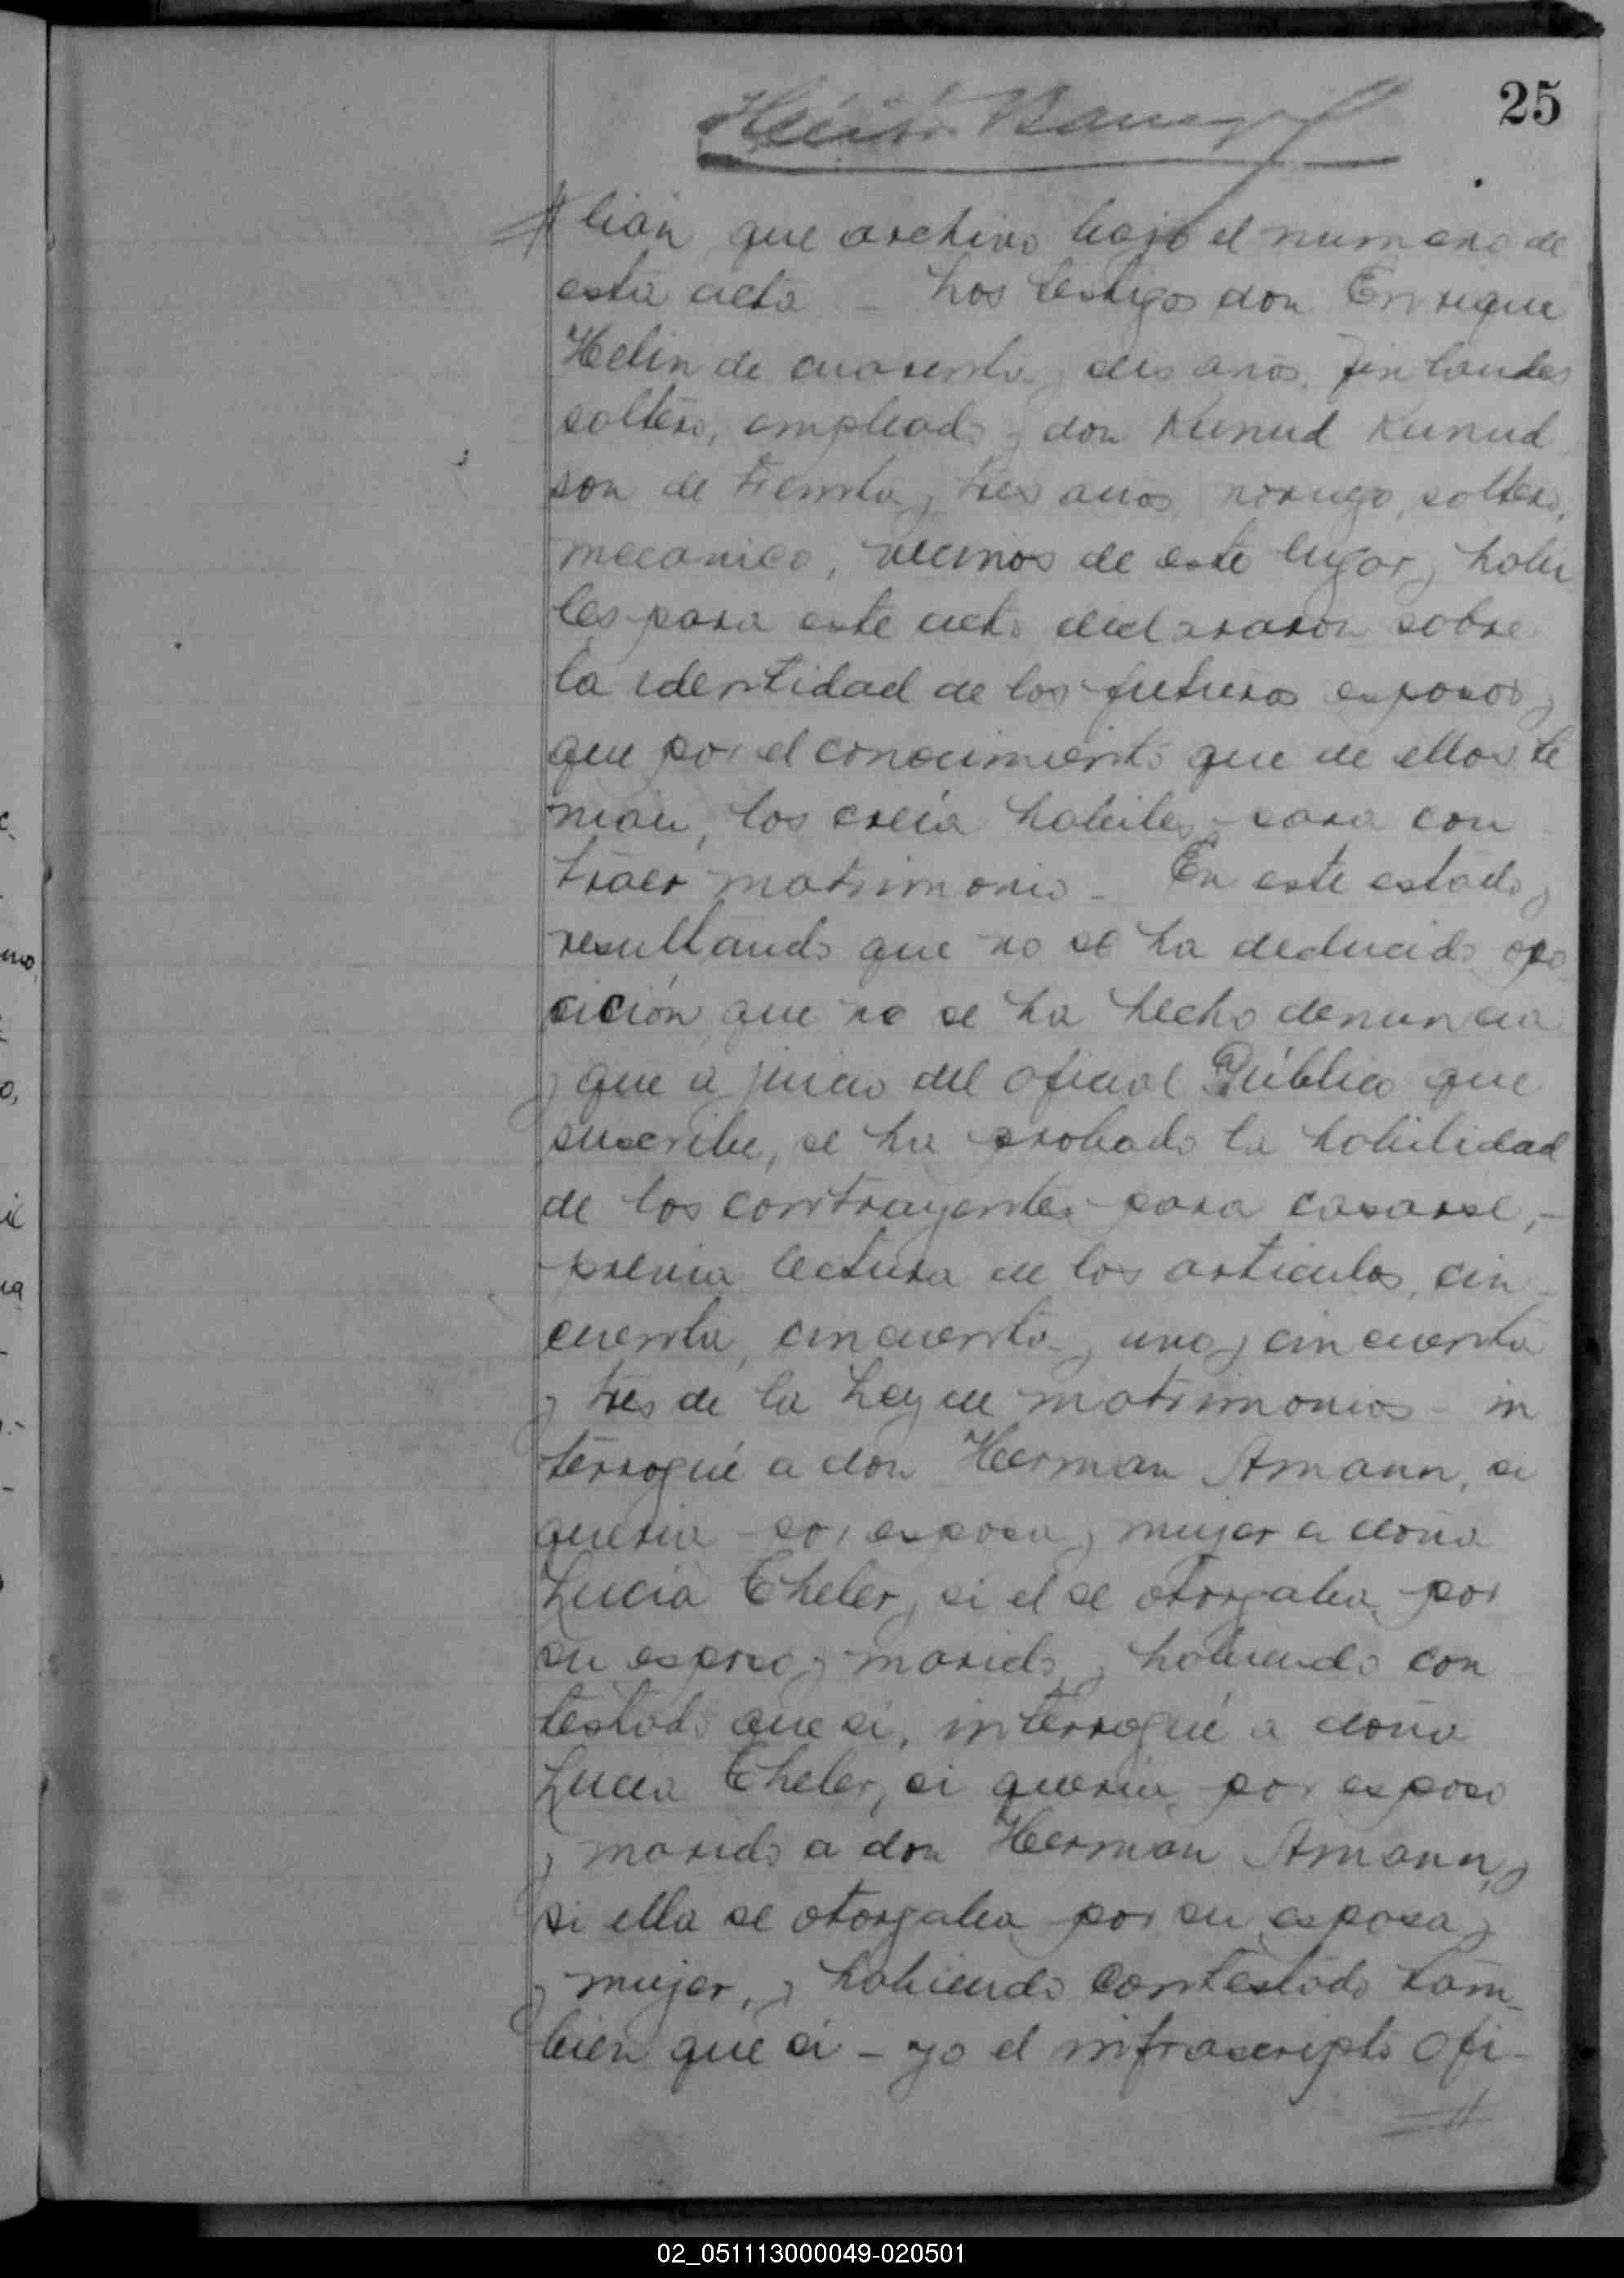 25
lián, que archivo bajo el numero de
esta acta - Los testigos don Enrique
Helin de cuarenta y seis años, finlandes
soltero, empleado y don Kunud Kunud
son de treinta y tres años, noruego, soltero,
mecanico, vecinos de este lugar y habi
les para este acto declararon sobre
la identidad de los futuros esposos y
que por el conocimiento que de ellos te
nian, los creía habiles para con
traer matrimonio - En este estado y
resultando que no se ha deducido opo
sición, que no se ha hecho denuncia
y que a juicio del oficial Público que
suscribe, se ha probado la habilidad
de los contrayentes para casarse, -
previa lectura de los articulos, cin
cuenta, cincuenta y uno y cincuenta
y tres de la Ley de matrimonios - in
terrogué a don Herman Amann, si
queria por esposa y mujer a doña
Lucia Theler y si el se otorgaba por
su esposo y marido, y habiendo con
testado que si, interrogué a doña
Lucia Theler, si queria por esposo
y marido a don Herman Amann, y
si ella se otorgaba por su esposa y
y mujer, y habiendo contestado tam-
bien que si - yo el infrascripto Ofi-
02_051113000049-020501